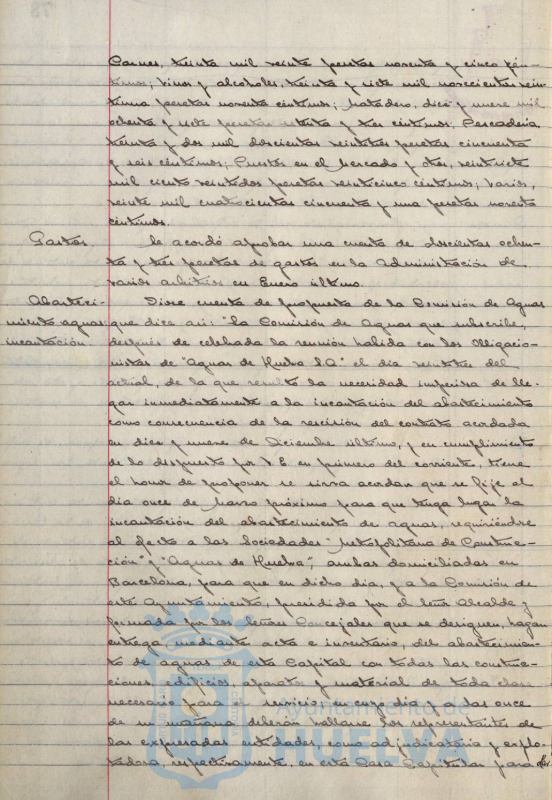 Carnes, treinta mil veinte pesetas noventa y cinco cén-
timos; vinos y alcoholes, treinta y siete mil novecientas vein-
tiuna pesetas noventa céntimos; Matadero, diez y nueve mil
ochenta y siete pesetas setenta y tres céntimos; Pescadería
treinta y dos mil doscientas veintitres pesetas cincuenta
y seis céntimos; Puestos en el Mercado y otros, veintisiete
mil ciento veintidos pesetas veinticinco céntimos; varios,
veinte mil cuatrocientas cincuenta y una pesetas noventa
céntimos.
Gastos. Se acordó aprobar una cuenta de doscientas ochen-
ta y tres pesetas de gastos en la Administración de
varios arbitrios en Enero último.
Abasteci- Diose cuenta de propuesta de la Comisión de Aguas
miento aguas que dice asi: "La Comisión de Aguas que subscribe,
incautación despues de celebrada la reunión habida con los Obligacio-
nistas de "Aguas de Huelva S.A." el dia veintitres del
actual, de la que resultó la necesidad imperiosa de lle-
gar inmediatamente a la incautación del abastecimiento
como consecuencia de la rescisión del contrato acordada
en diez y nueve de Diciembre último, y en cumplimiento
de lo dispuesto por V.E. en primero del corriente, tiene
el honor de proponer se sirva acordar que se fije el
dia once de Marzo próximo para que tenga lugar la
incautación del abastecimiento de aguas, requiriéndose
al efecto a las Sociedades "Metropolitana de Construc-
ción" y "Aguas de Huelva", ambas domiciliadas en
Barcelona, para que en dicho dia, y a la Comisión de
este Ayuntamiento, presidida por el Señor Alcalde y
formada por los Señores Concejales que se designen, hagan
entrega, mediante acta e inventario, del abastecimien-
to de aguas de esta Capital con todas las construc-
ciones, edificios, aparatos y material de toda clase
necesario para el servicio; en cuyo dia y a las once
de su mañana deberán hallarse los representantes de
las expresadas entidades, como adjudicataria y explo-
tadora, respectivamente, en esta Casa Capitular para
Ayuntamiento de
HUELVA